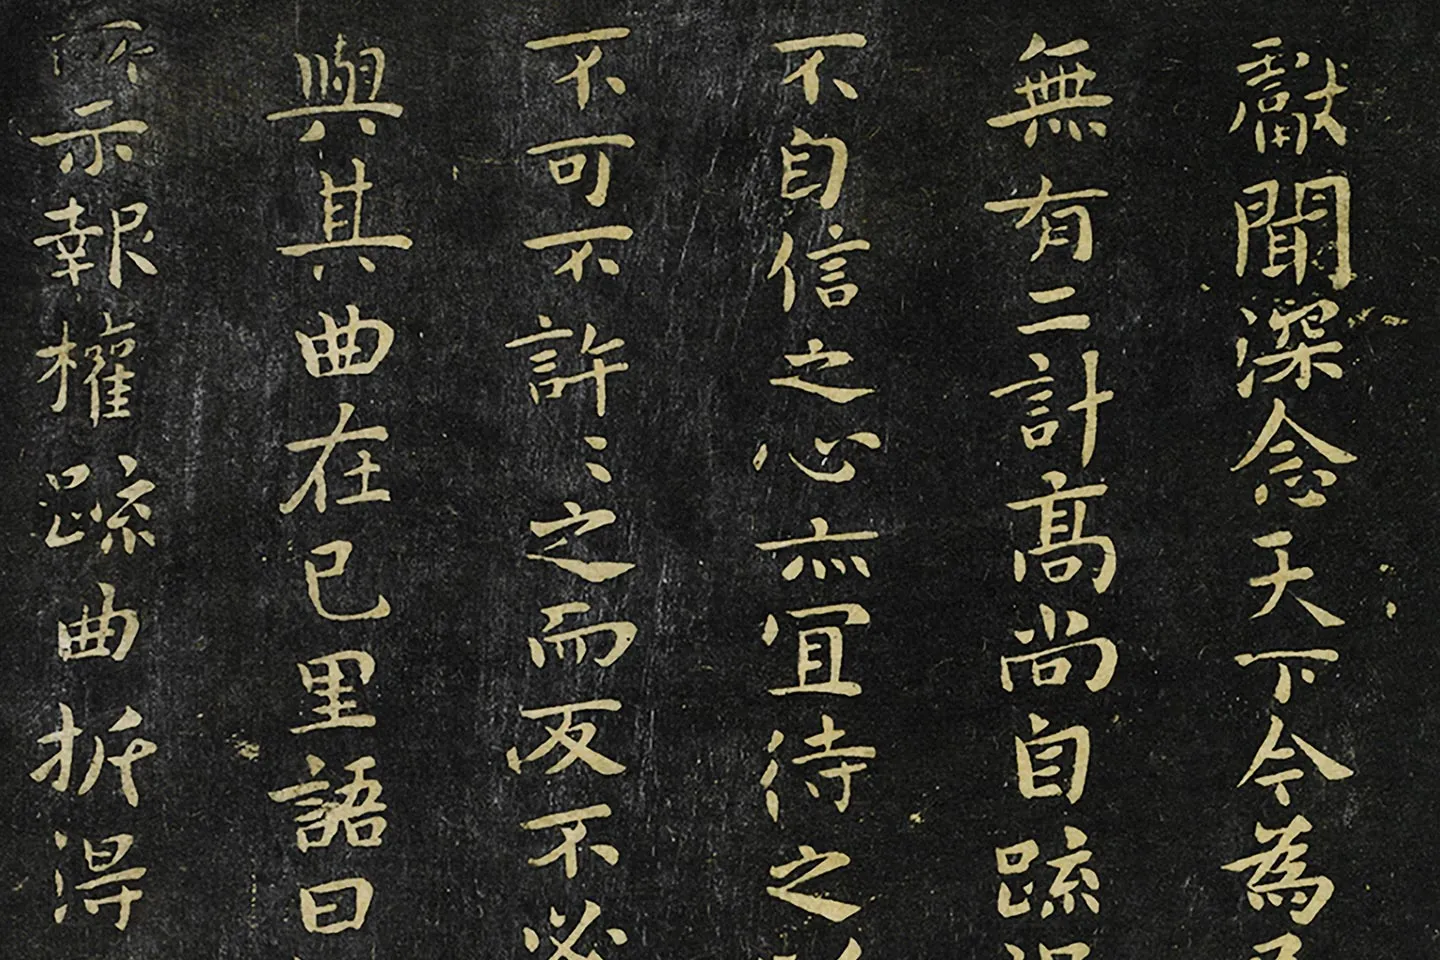 獻聞深念天下今為
無有二計高尚自疏
不自信之心亦宜待之
不可不許〻之而反不必
與其曲在已里語曰
所示報權疏曲折得